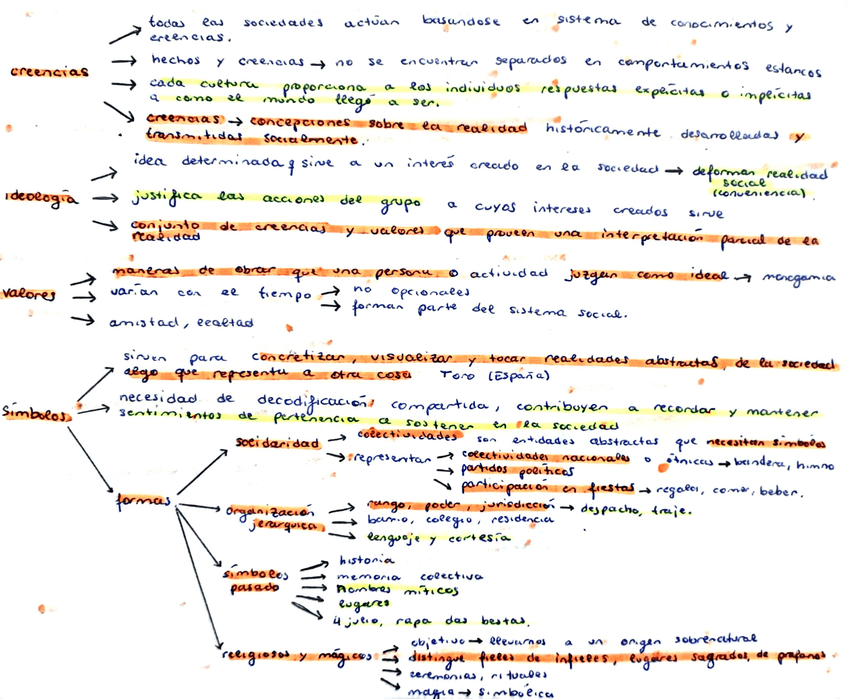 todas las sociedades actúan basandose en sistema de conocimientos y
creencias.
creencias
hechos y creencias → no se encuentran separados en comportamientos estancos
cada cultura proporciona a los individuos respuestas explícitas o implícitas
a como el mundo llegó a ser.
creencias → concepciones sobre la realidad históricamente desarrolladas y
transmitidas socialmente.
idea determinada q sirve a un interés creado en la sociedad → deforman realidad
social
(conveniencia).
ideología
justifica las acciones del grupo a cuyos intereses creados sirve
conjunto de creencias y valores que proveen una interpretación parcial de la
realidad
maneras de obrar que una persona o actividad juzgan como ideal → monogamia
valores
varían con el tiempo → no opcionales
→ forman parte del sistema social.
amistad, lealtad
sirven para concretizar, visualizar y tocar realidades abstractas, de la sociedad
algo que representa a otra cosa Toro (España)
símbolos
necesidad de decodificación compartida, contribuyen a recordar y mantener
sentimientos de pertenencia a sostener en la sociedad
formas
socidaridad → colectividades son entidades abstractas que necesitan símbolos
→ representar → colectividades nacionales o étnicas → bandera, himno
→ partidos políticos
→ participación en fiestas → regalos, comer, beber.
organización
jerarquica
→ rango, poder, jurisdicción → despacho, traje.
→ barrio, colegio, residencia
→ lenguaje y cortesía
símbolos
pasado
→ historia
→ memoria colectiva
→ Nombres míticos
→ lugares
→ 4 julio, rapa das bestas.
religiosos y mágicos → objetivo → llevarnos a un origen sobrenatural
→ distingue fieles de infieles, lugares sagrados, de profanos
→ ceremonias, rituales
→ magia → simbólica